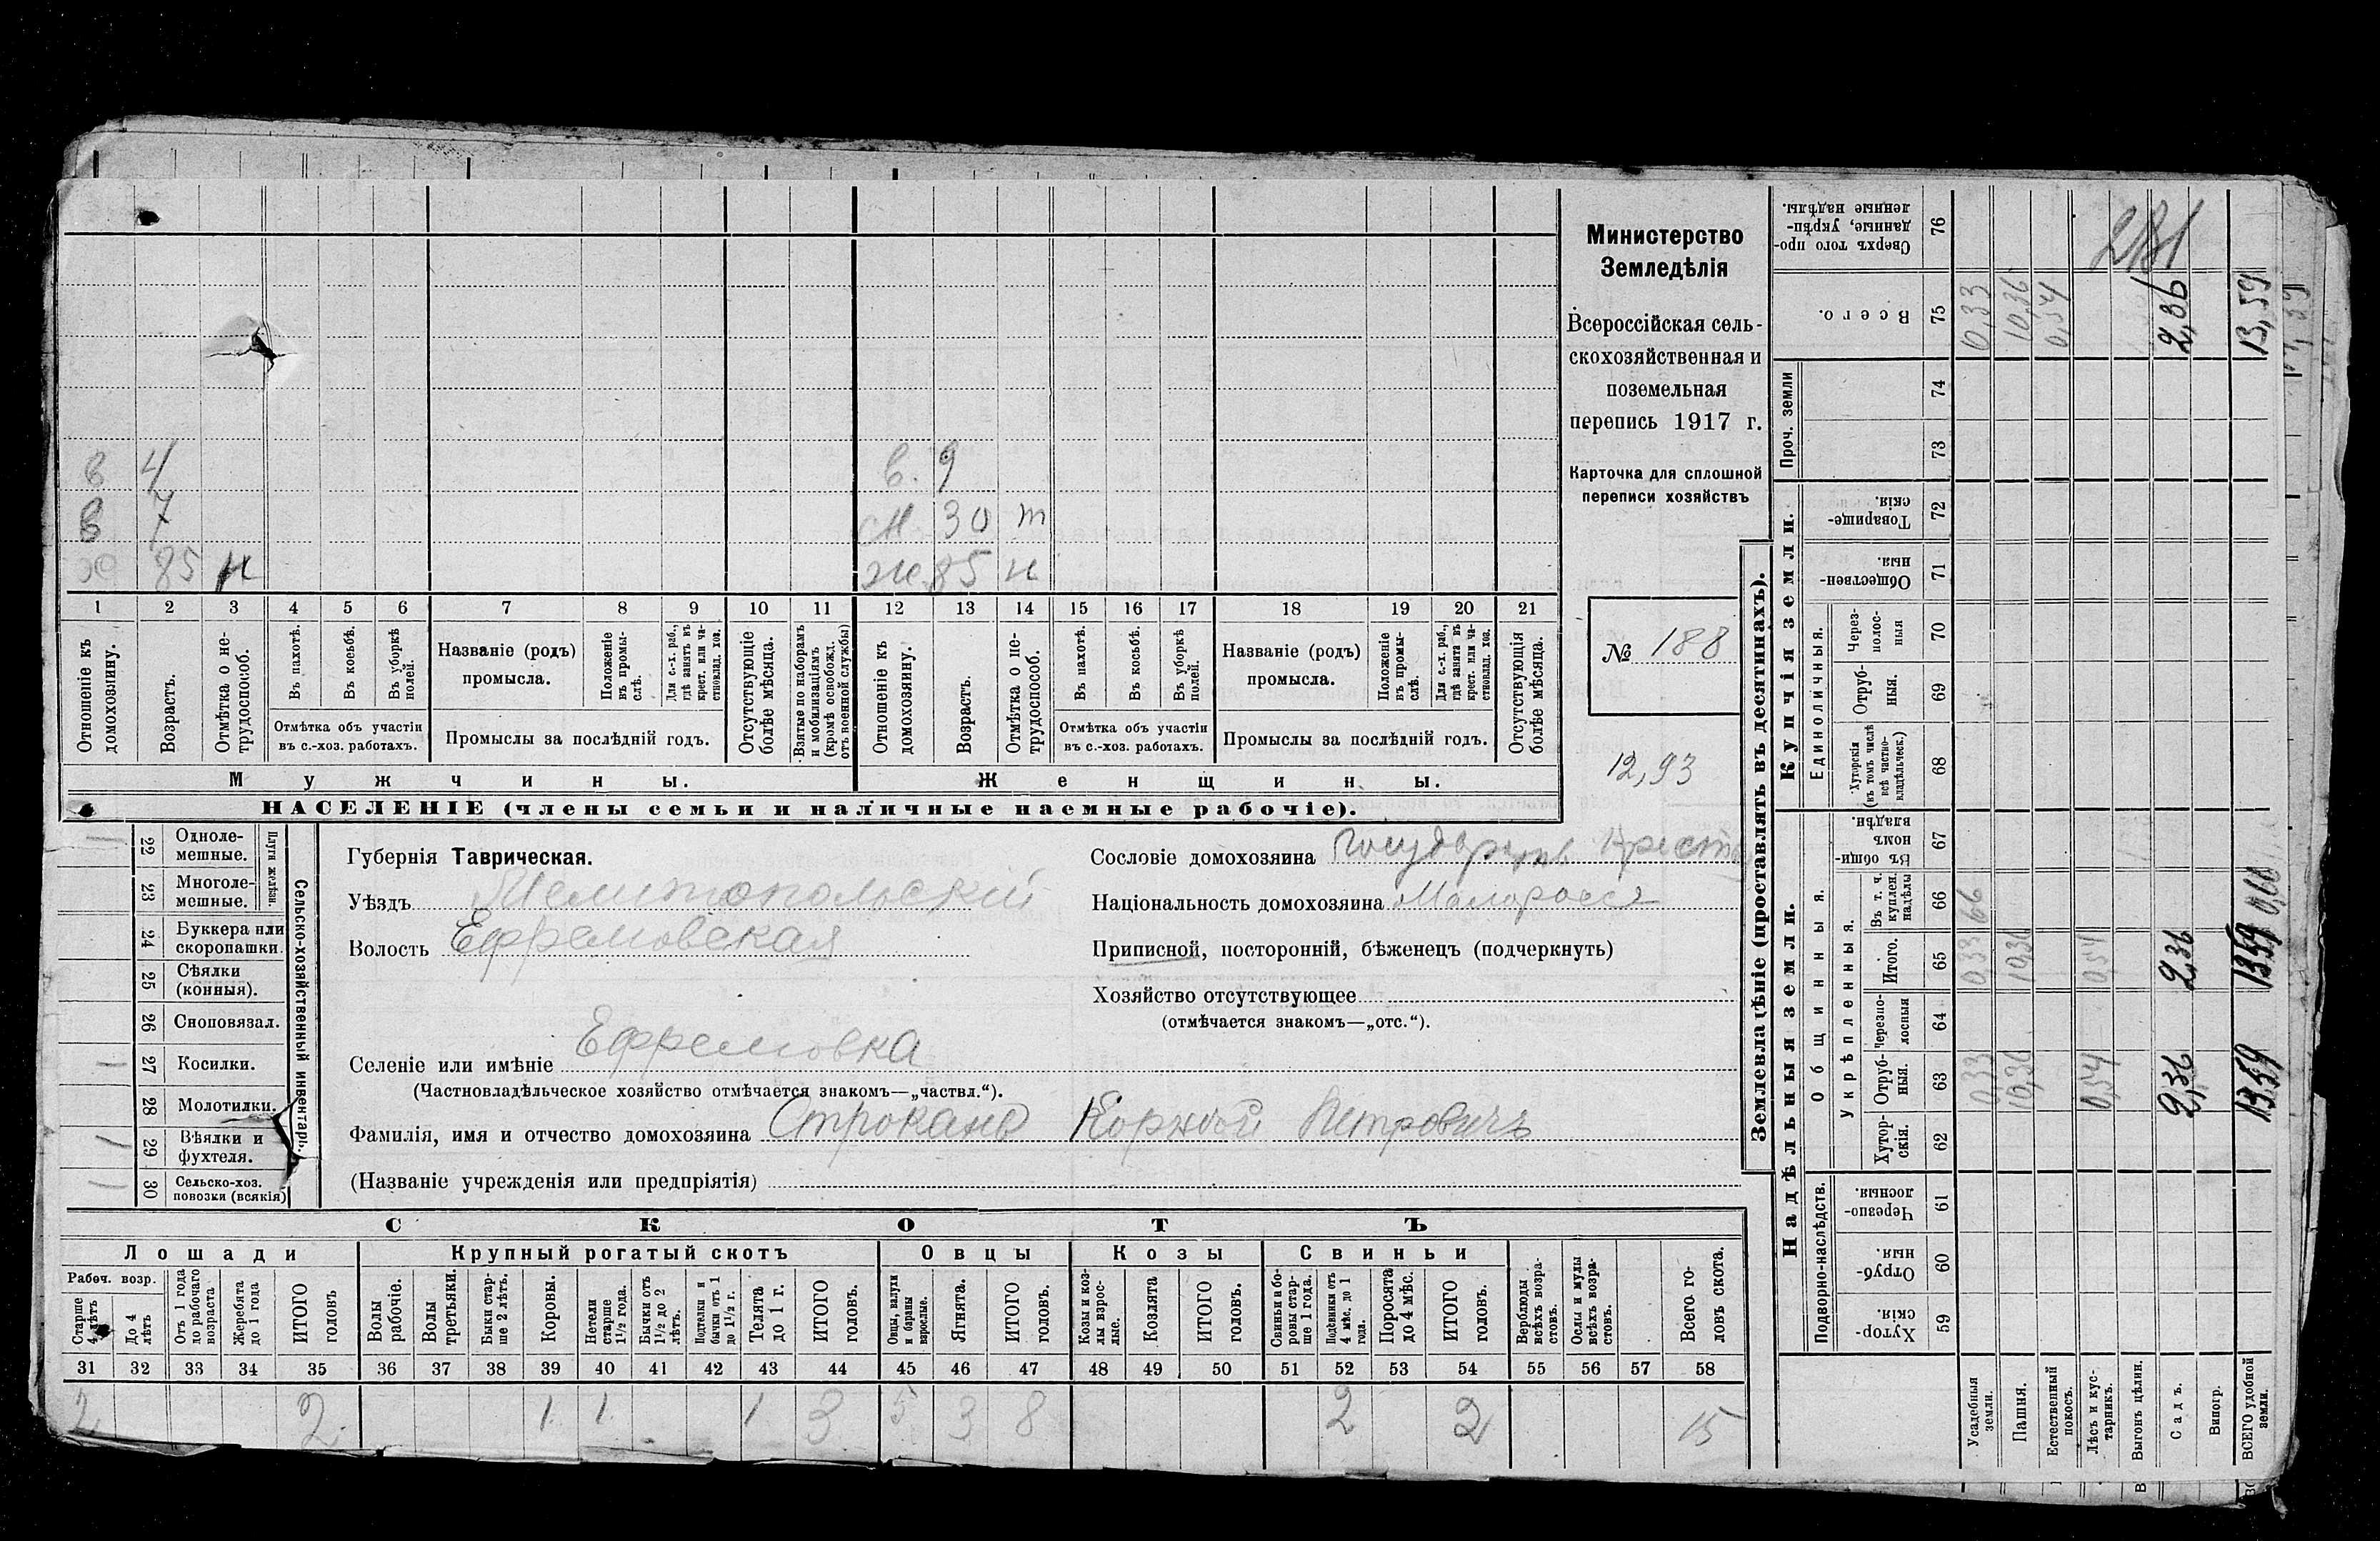 Министерство
Земледѣлія
Всероссійская сель-
скохозяйственная и
поземельная
перепись 1917 г.
Карточка для сплошной
переписи хозяйствъ
№ 188
12,93
в 4
в 7
х 85 н
в. 9
сн 30 т
ж. 85 н
1 2 3 4 5 6 7 8 9 10 11 12 13 14 15 16 17 18 19 20 21
Отношеніе къ домохозяину.
Возрастъ.
Отмѣтка о не-трудоспособ.
Въ пахотѣ.
Въ косьбѣ.
Въ уборкѣ полей.
Отмѣтка объ участіи
въ с.-хоз. работахъ.
Названіе (родъ)
промысла.
Положеніе въ промы-слѣ.
Для с.-х. раб., гдѣ занятъ въ крест. или ча-стновлад. хоз.
Промыслы за послѣдній годъ.
Отсутствующіе болѣе мѣсяца.
Взятые по наборамъ и мобилизаціямъ (кромѣ освобожд. отъ военной службы)
Отношеніе къ домохозяину.
Возрастъ.
Отмѣтка о не-трудоспособ.
Въ пахотѣ.
Въ косьбѣ.
Въ уборкѣ полей.
Отмѣтка объ участіи
въ с.-хоз. работахъ.
Названіе (родъ)
промысла.
Положеніе въ промы-слѣ.
Для с.-х. раб., гдѣ занята въ крест. или ча-стновлад. хоз.
Промыслы за послѣдній годъ.
Отсутствующія болѣе мѣсяца.
Мужчины.
Женщины.
НАСЕЛЕНІЕ (члены семьи и наличные наемные рабочіе).
Сельско-хозяйственный инвентарь.
Плуги желѣзн.
22 Одноле-мешные.
23 Многоле-мешные.
24 Буккера или скоропашки.
25 Сѣялки (конныя).
26 Сноповязал.
27 Косилки.
28 Молотилки.
29 Вѣялки и фухтеля.
30 Сельско-хоз. повозки (всякія)
Губернія Таврическая.
Уѣздъ Мелитопольскій
Волость Ефремовская
Селеніе или имѣніе Ефремовка
(Частновладѣльческое хозяйство отмѣчается знакомъ—„частвл.“).
Фамилія, имя и отчество домохозяина Строкань Корней Петровичъ
(Названіе учрежденія или предпріятія)
Сословіе домохозяина Государств. Крест
Національность домохозяина Малоросс
Приписной, посторонній, бѣженецъ (подчеркнуть)
Хозяйство отсутствующее
(отмѣчается знакомъ—„отс.“).
СКОТЪ
Лошади
Крупный рогатый скотъ
Овцы
Козы
Свиньи
Рабоч. возр.
Старше 4 лѣтъ
До 4 лѣтъ
Отъ 1 года до рабочаго возраста
Жеребята до 1 года
ИТОГО головъ
Волы рабочіе.
Волы третьяки.
Быки стар-ше 2 лѣтъ.
Коровы.
Нетели старше 1½ года.
Бычки отъ 1½ до 2 лѣтъ.
Подтелки и бычки отъ 1 до 1½ г.
Телята до 1 г.
ИТОГО головъ.
Овцы, валухи и бараны взрослые.
Ягнята.
ИТОГО головъ.
Козы и коз-лы взрос-лые.
Козлята
ИТОГО головъ.
Свиньи и бо-ровы стар-ше 1 года.
Подсвинки отъ 4 мѣс. до 1 года.
Поросята до 4 мѣс.
ИТОГО головъ.
Верблюды всѣхъ возра-стовъ.
Ослы и мулы всѣхъ возра-стовъ.
Всего го-ловъ скота.
31 32 33 34 35 36 37 38 39 40 41 42 43 44 45 46 47 48 49 50 51 52 53 54 55 56 57 58
2 2. 1. 1. 1 3 5 3 8 2 2 15
Землевладѣніе (проставлять въ десятинахъ).
Сверхъ того про-данные, укрѣп-ленные надѣлы. 76
Всего. 75
Проч. земли
74
73
Купчія земли.
Товарище-скія. 72
Обществен-ныя. 71
Единоличныя.
Через-полос-ныя 70
Отруб-ныя. 69
Хуторскія (въ томъ числѣ всѣ частно-владѣльческ.) 68
Надѣльныя земли.
Общинныя.
Въ общи-номъ владѣн. 67
Укрѣпленныя.
Въ т. ч. куплен. надѣлы 66
Итого. 65
Черезпо-лосныя 64
Отруб-ныя. 63
Хутор-скія. 62
Подворно-наслѣдств.
Черезпо-лосныя. 61
Отруб-ныя. 60
Хутор-скія. 59
Усадебныя земли.
Пашня.
Естественный покосъ.
Лѣсъ и кус-тарникъ.
Выгонъ цѣлин.
Садъ.
Виногр.
ВСЕГО удобной земли.
281
0,33 10,36 0,54 2,36 13,59
66 0,66
0,33 10,36 0,54 2,36 13,59
0,33 10,36 0,54 2,36 13,59